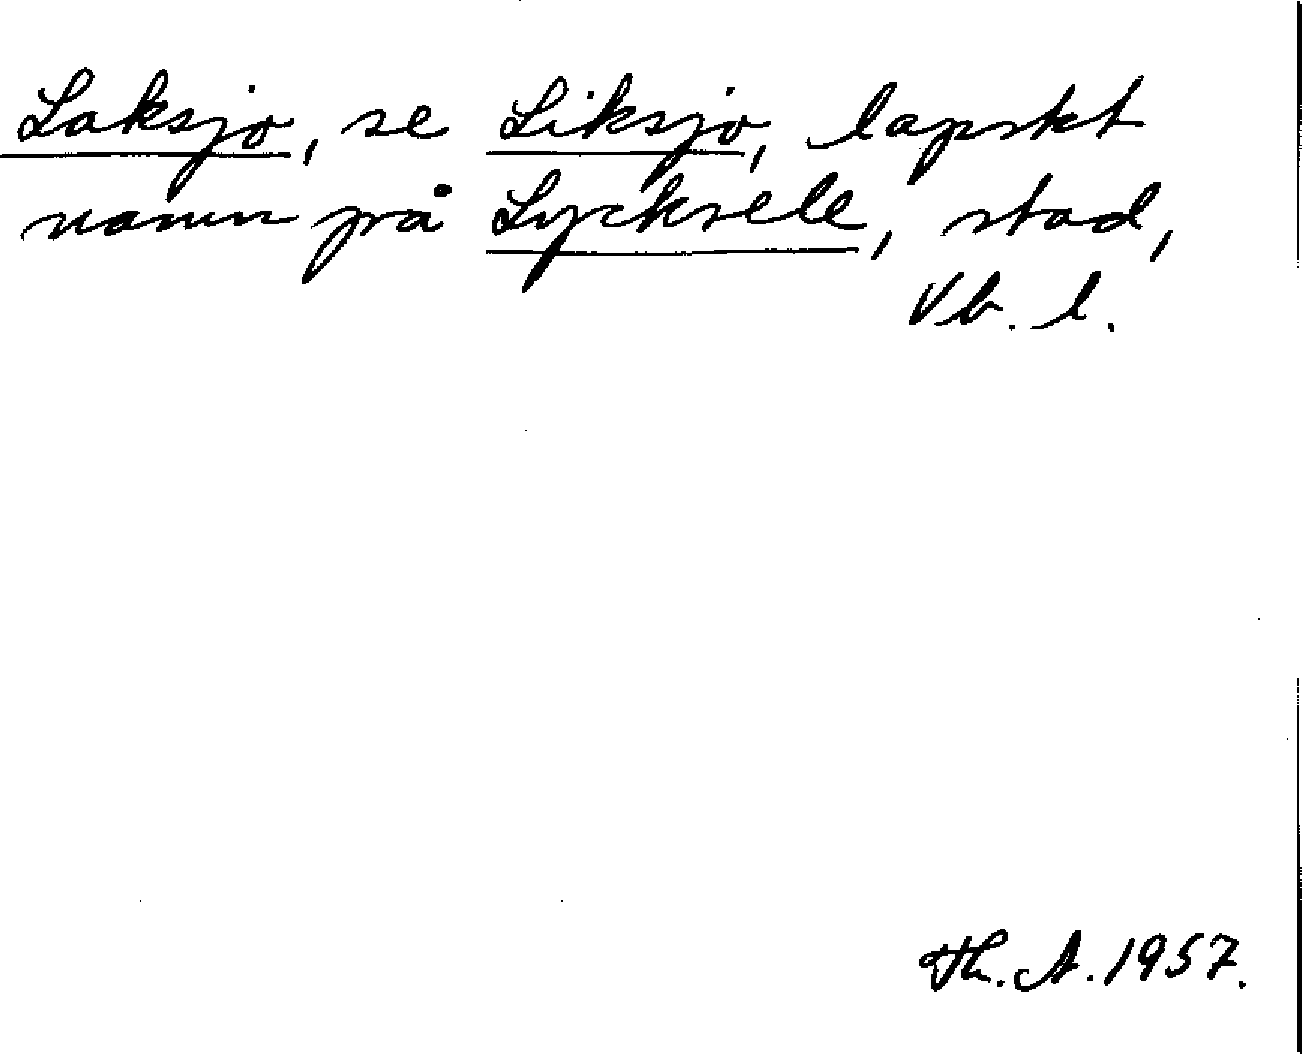 Laksjo, se Liksjo, lapskt
namn på Lycksele, stad,
Vb. l.
Th. A. 1957.